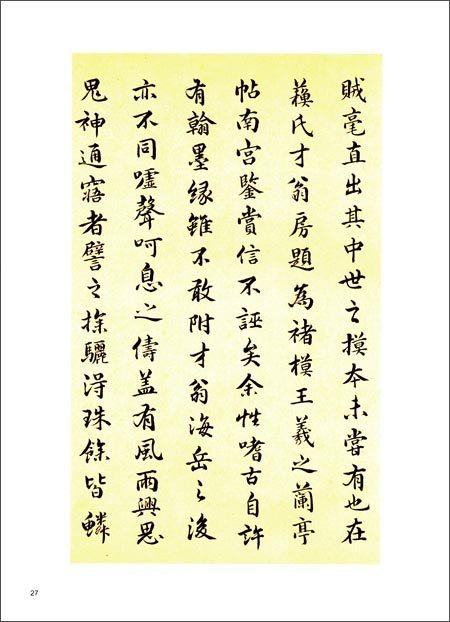 賊毫直出其中世之摸本未嘗有也在
蘓氏才翁房題為褚模王羲之蘭亭
帖南宫鑒賞信不誣矣余性嗜古自許
有翰墨縁雖不敢附才翁海岳之後
亦不同嘘聲呵息之儔盖有風雨興思
鬼神通寤者譬之探驪淂珠餘皆鱗
27